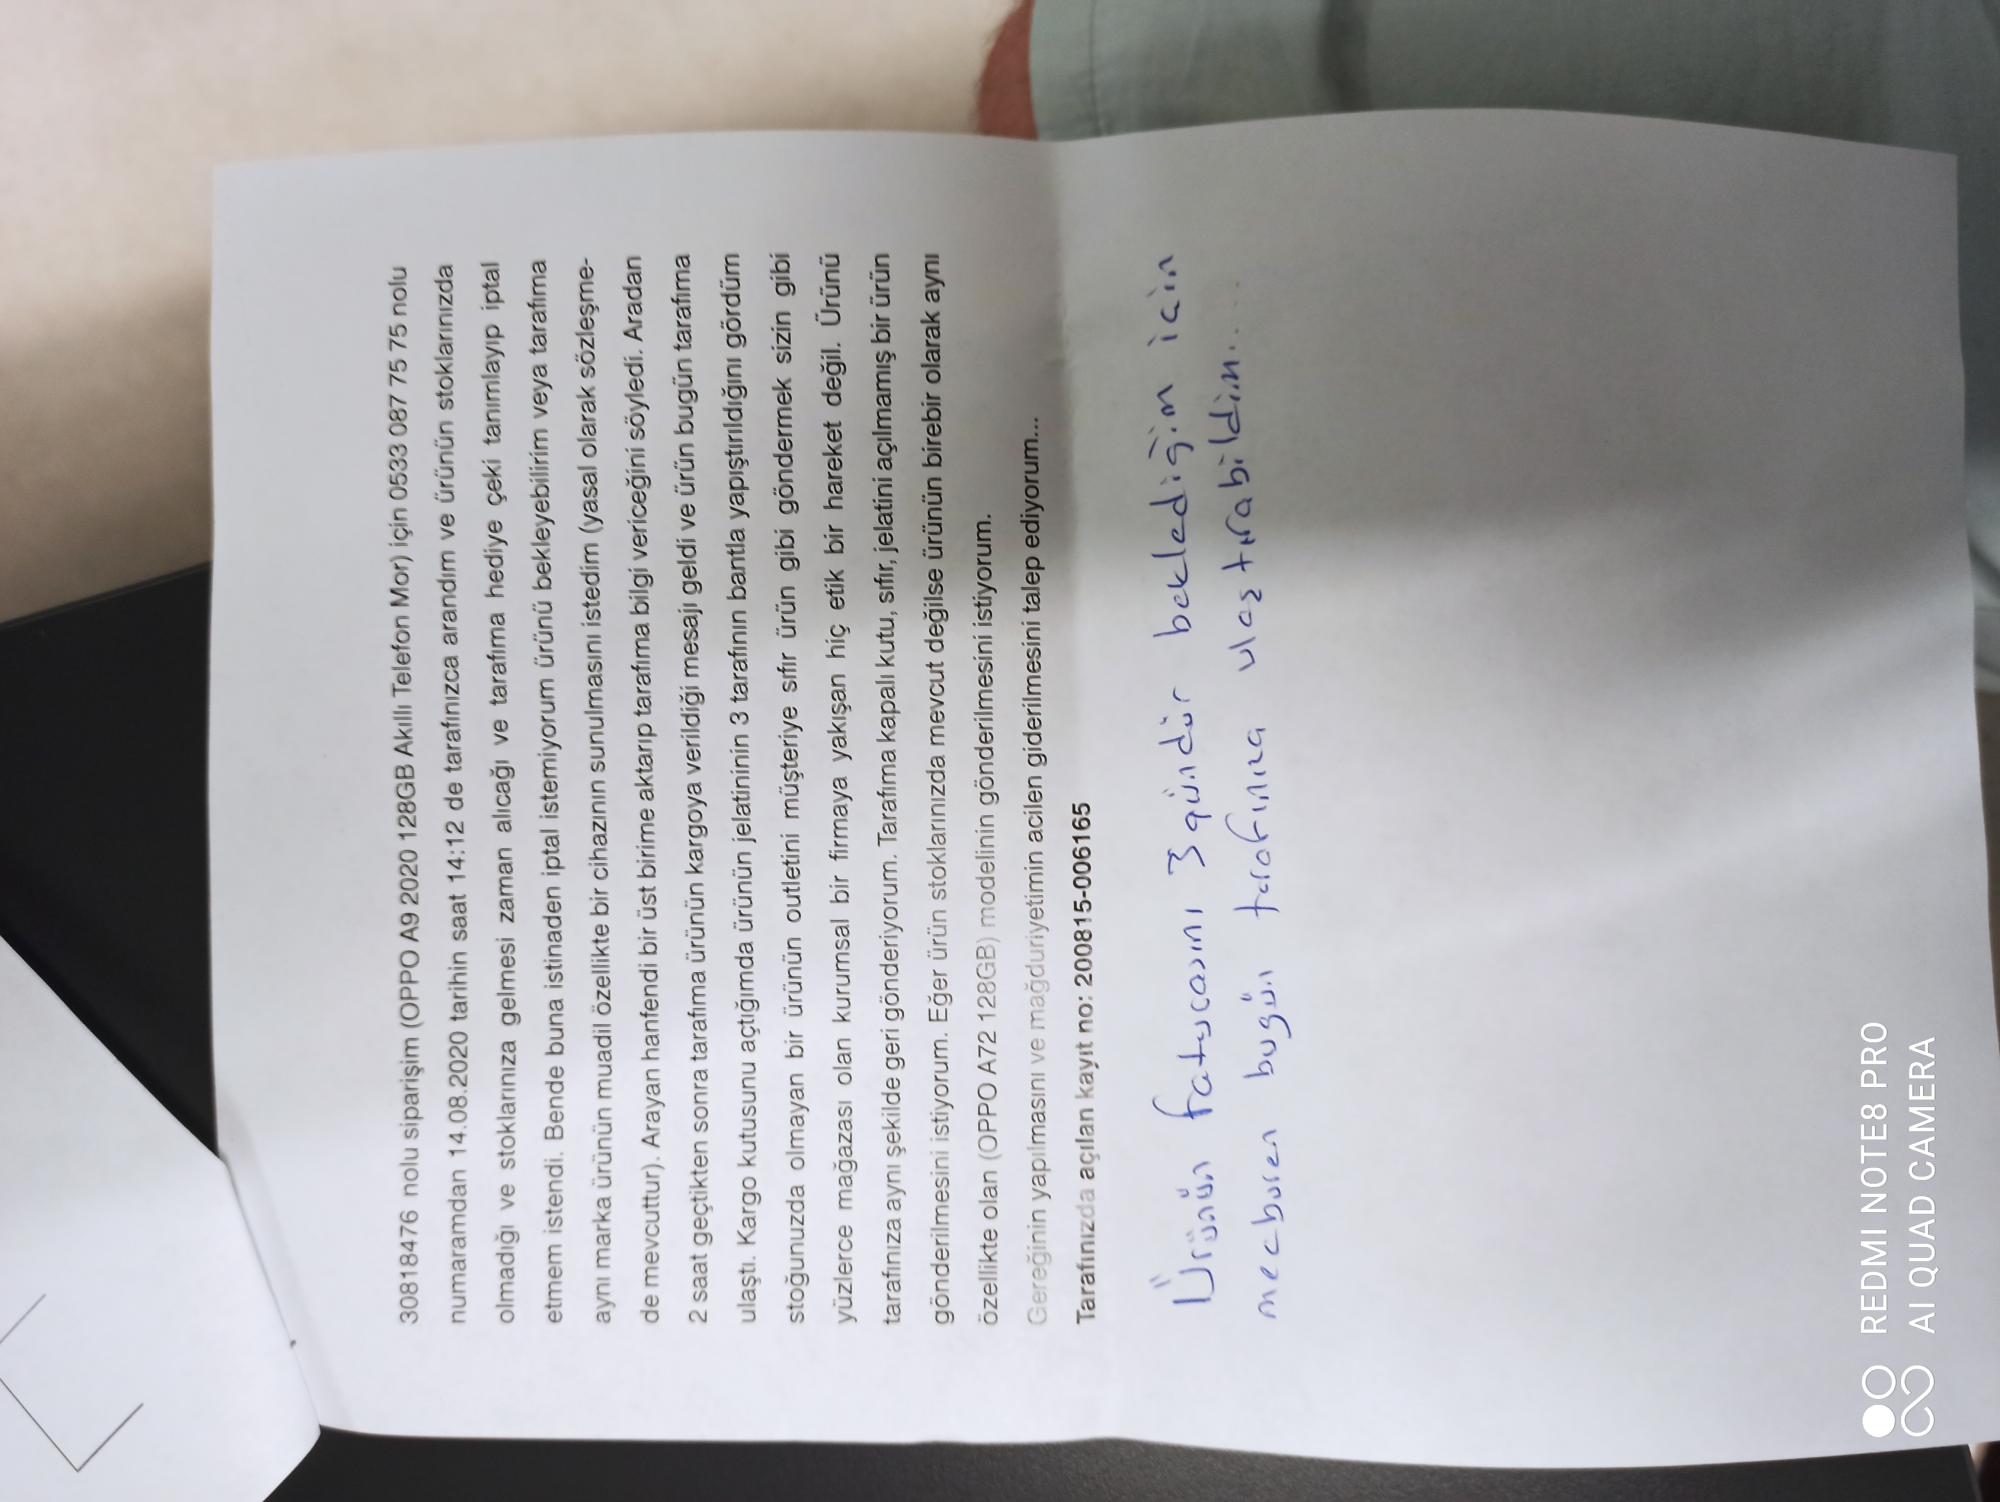 30818476 nolu siparişim (OPPO A9 2020 128GB Akıllı Telefon Mor) için 0533 087 75 75 nolu
numaramdan 14.08.2020 tarihin saat 14:12 de tarafınızca arandım ve ürünün stoklarınızda
olmadığı ve stoklarınıza gelmesi zaman alıcağı ve tarafıma hediye çeki tanımlayıp iptal
etmem istendi. Bende buna istinaden iptal istemiyorum ürünü bekleyebilirim veya tarafıma
aynı marka ürünün muadil özellikte bir cihazının sunulmasını istedim (yasal olarak sözleşme-
de mevcuttur). Arayan hanfendi bir üst birime aktarıp tarafıma bilgi vericeğini söyledi. Aradan
2 saat geçtikten sonra tarafıma ürünün kargoya verildiği mesajı geldi ve ürün bugün tarafıma
ulaştı. Kargo kutusunu açtığımda ürünün jelatininin 3 tarafının bantla yapıştırıldığını gördüm
stoğunuzda olmayan bir ürünün outletini müşteriye sıfır ürün gibi göndermek sizin gibi
yüzlerce mağazası olan kurumsal bir firmaya yakışan hiç etik bir hareket değil. Ürünü
tarafınıza aynı şekilde geri gönderiyorum. Tarafıma kapalı kutu, sıfır, jelatini açılmamış bir ürün
gönderilmesini istiyorum. Eğer ürün stoklarınızda mevcut değilse ürünün birebir olarak aynı
özellikte olan (OPPO A72 128GB) modelinin gönderilmesini istiyorum.
Gereğinin yapılmasını ve mağduriyetimin acilen giderilmesini talep ediyorum...
Tarafınızda açılan kayıt no: 200815-006165
Ürünün faturasını 3 gündür beklediğim için
mecburen bugün tarafınıza ulaştırabildim....
REDMI NOTE8 PRO
AI QUAD CAMERA